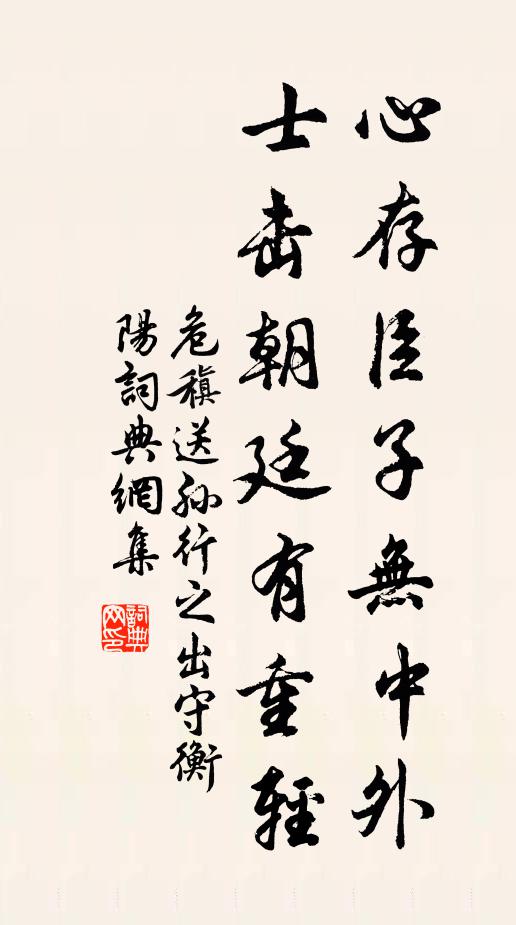 心存臣子無中外
士去朝廷有重輕
危稹送孫行之出守衡
陽詞典網集
詞典
网印